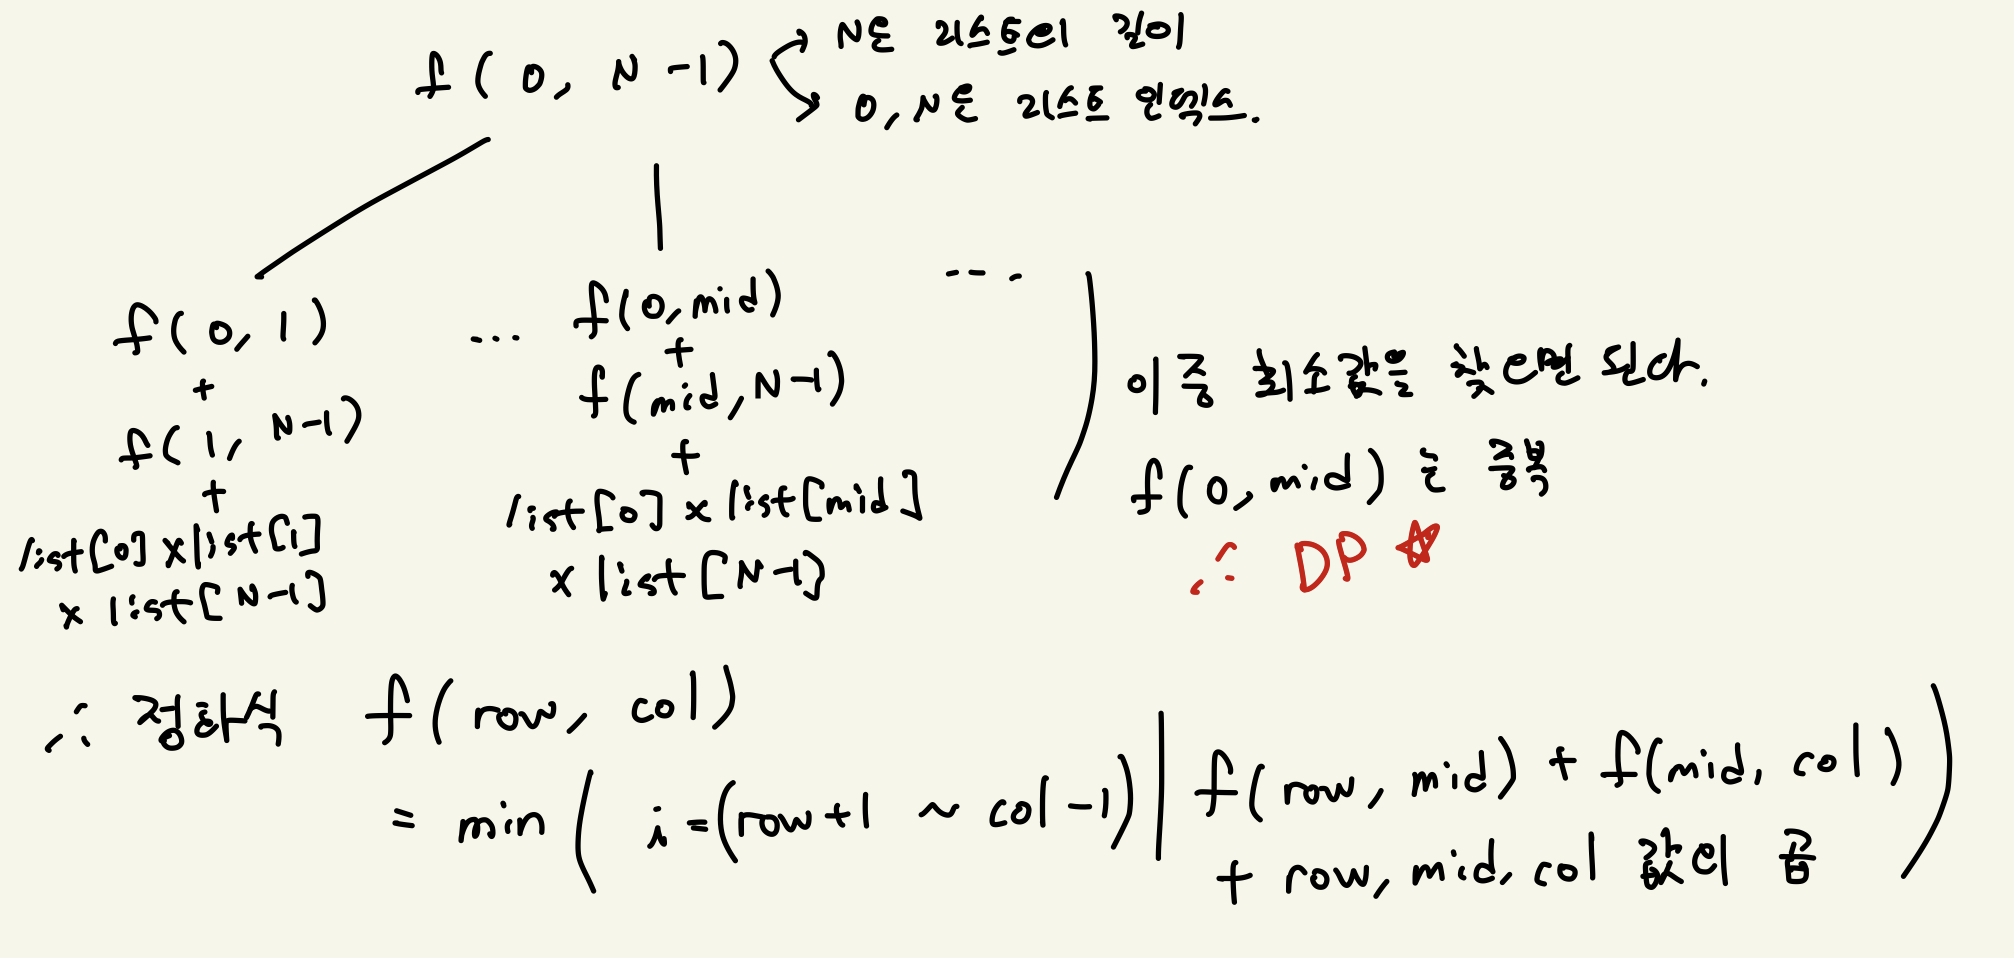 f(0, N-1)
N은 리스트의 길이
0, N은 리스트 인덱스.
f(0, 1)
+
f(1, N-1)
+
list[0] x list[1]
x list[N-1]
...
f(0, mid)
+
f(mid, N-1)
+
list[0] x list[mid]
x list[N-1]
...
이 중 최소값을 찾으면 된다.
f(0, mid)는 중복
∴ DP ☆
∴ 점화식 f(row, col)
= min( i=(row+1 ~ col-1) | f(row, mid) + f(mid, col)
+ row, mid, col 값의 곱 )